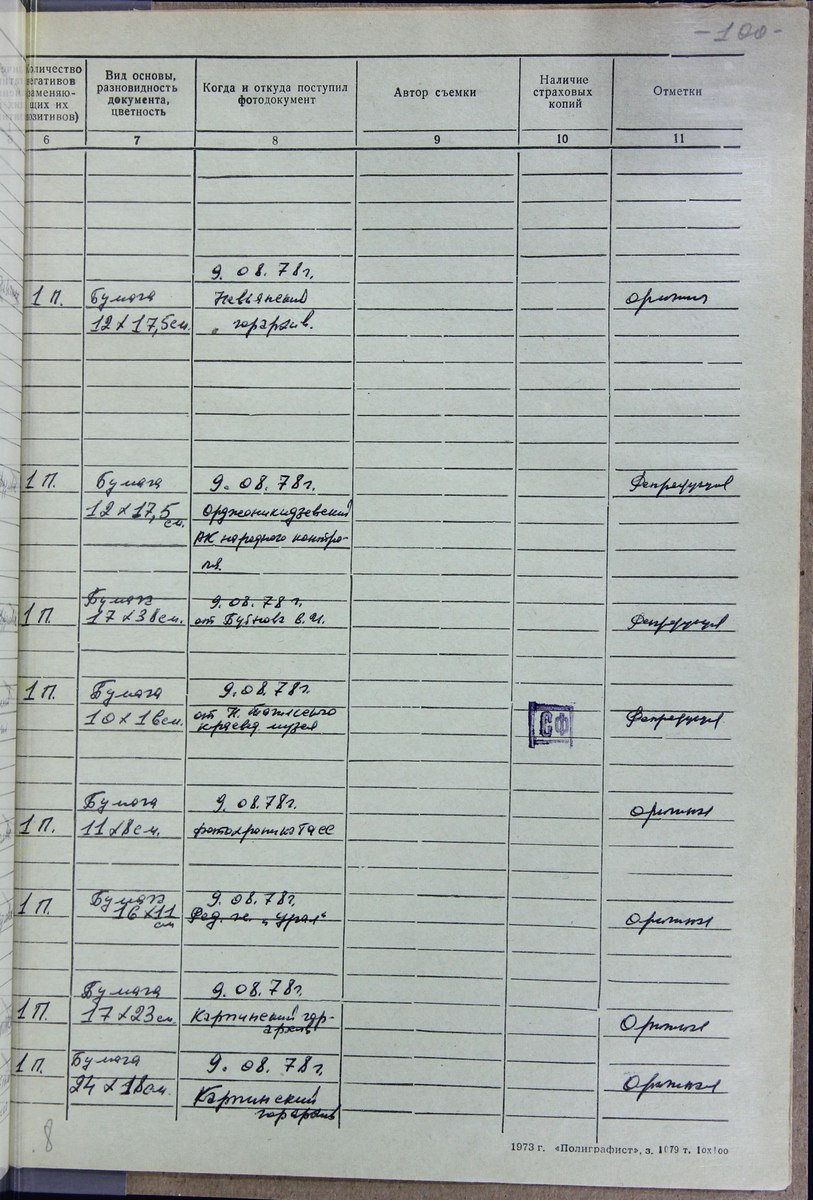 -100-
Количество
негативов
заменяю-
щих их
позитивов)
Вид основы,
разновидность
документа,
цветность
Когда и откуда поступил
фотодокумент
Автор съемки
Наличие
страховых
копий
Отметки
6
7
8
9
10
11
9. 08. 78 г.
1 П.
Бумага
Невьянский
12 х 17,5 см.
горархив.
1 П.
Бумага
9. 08. 78 г.
12 х 17,5
см.
Орджоникидзевский
РК народного контро-
ля.
Бумага
9. 08. 78 г.
1 П.
17 х 38 см.
1 П.
Бумага
9. 08. 78 г.
от Н. Тагильского
краевед. музея
СФ
Бумага
9. 08. 78 г.
1 П.
11 х 8 см.
фотохроника ТАСС
1 П.
Бумага
16 х 11
см
9. 08. 78 г.
Ред. ж. „Урал"
Бумага
9. 08. 78 г.
1 П.
17 х 23 см.
Карпинский гор-
архив
1 П.
Бумага
9. 08. 78 г.
24 х 18 см.
Карпинский
горархив
8
1973 г. «Полиграфист», з. 1079 т. 10х100